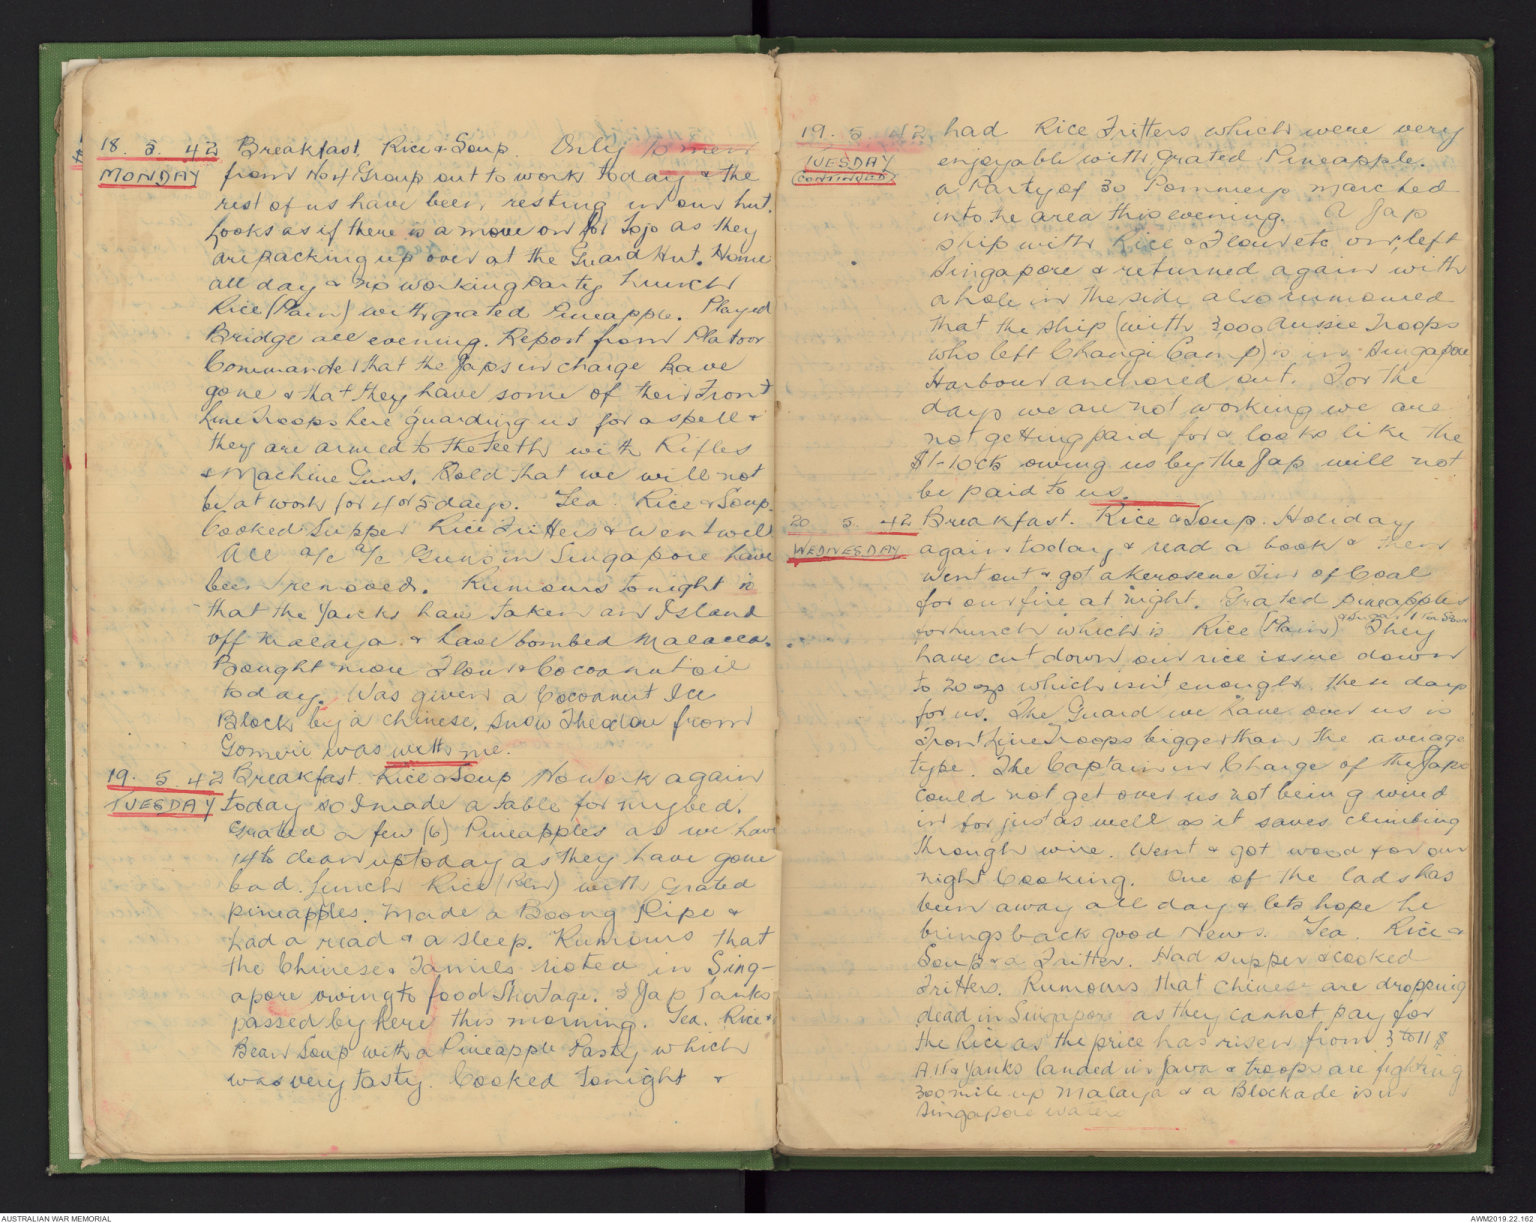 18. 5. 42 Breakfast. Rice & Soup Only 10 men
MONDAY from No 4 Group out to work today & the
rest of us have been resting in our hut.
Looks as if there is a move on for Tojo as they
are packing up over at the Guard Hut. Home
all day & no working Party Lunch
Rice (Plain) with grated Pineapple. Played
Bridge all evening. Report from Platoon
Commander that the Japs in charge have
gone & that they have some of their Front
Line Troops here guarding us for a spell &
they are armed to the Teeth with Rifles
& Machine Guns. Told that we will not
be at work for 4 or 5 days. Tea Rice & Soup.
Cooked Supper Rice Fritters & Went well
All a/c a/c Guns in Singapore have
been removed. Rumours tonight is
that the Yanks have taken an Island
off Malaya & have bombed Malacca.
Bought more Flour & Cocoanut oil
today. Was given a Cocoanut Ice
Block by a chinese. Snow from
was with me.
19. 5. 42 Breakfast. Rice & Soup No Work again
TUESDAY today so I made a table for my bed.
Grated a few (6) Pineapples as we have
14 to clean up today as they have gone
bad. Lunch Rice (Plain) with Grated
pineapples. Made a Boong Pipe &
had a read & a sleep. Rumours that
the Chinese & Tamils rioted in Sing-
apore owing to food Shortage. 3 Jap Tanks
passed by here this morning. Tea. Rice &
Bean Soup with a Pineapple Pasty which
was very tasty. Cooked Tonight &
19. 5. 42 had Rice Fritters which were very
TUESDAY enjoyable with grated Pineapple.
(CONTINUED) a Party of 30 Pommeys marched
into the area this evening. A Jap
ship with Rice & Flour etc on, left
Singapore & returned again with
a hole in the side also rumoured
that the ship (with 3000 Aussie Troops
who left Changi Camp) is in Singapore
Harbour anchored out. For the
days we are not working we are
not getting paid for & looks like the
$1-10cts owing us by the Jap will not
be paid to us.
20 5. 42 Breakfast. Rice & Soup. Holiday
WEDNESDAY again today & read a book & then
went out & got a Kerosene Tin of Coal
for our fire at night. Grated pineapples
for Lunch which is Rice (Plain) They
have cut down our rice issue down
to 20 ozs which isn't enough these days
for us. The Guard we have over us is
Front Line Troops bigger than the average
type. The Captain in Charge of the Japs
could not get over us not being wired
in for just as well as it saves climbing
through wire. Went & got wood for our
night Cooking. One of the lads has
been away all day & lets hope he
brings back good News. Tea. Rice &
Soup & a Fritter. Had supper & cooked
Fritters. Rumours that chinese are dropping
dead in Singapore as they cannot pay for
the Rice as the price has risen from 3 to 11 $
& Yanks landed in Java & troops are fighting
300 mile up Malaya & a Blockade is in
Singapore waters
AUSTRALIAN WAR MEMORIAL
AWM2019.22.162